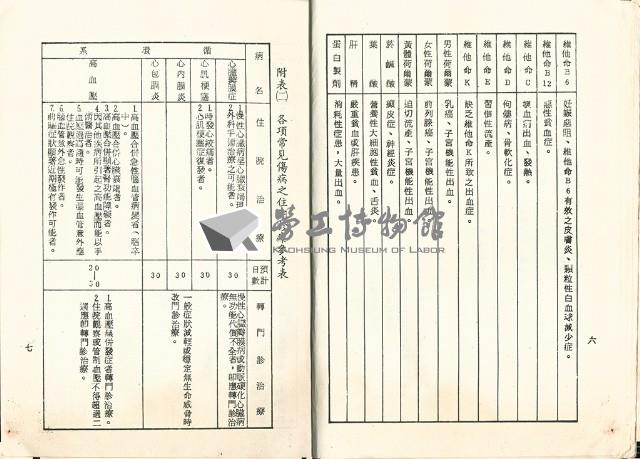 維他命B6 妊娠惡阻、維他命B6有效之皮膚炎、顆粒性白血球減少症。
維他命B12 惡性貧血症。
維他命C 壞血病出血、發熱。
維他命D 佝僂病、骨軟化症。
維他命E 習慣性流產。
維他命K 缺乏維他命K所致之出血症。
男性荷爾蒙 乳癌、子宮機能性出血。
女性荷爾蒙 前列腺癌、子宮機能性出血。
黃體荷爾蒙 迫切流產、子宮機能性出血。
菸鹼酸 癩皮症、神經炎症。
葉酸 營養性大細胞性貧血、舌炎
肝精 嚴重貧血或肝疾患。
蛋白製劑 消耗性症患,大量出血。
六
附表㈡ 各項常見傷病之住
參考表
病名
住院治療
預計日數
轉門診治療
循環系
心臟瓣膜症
1.慢性心臟病呈心臟衰竭
2.外科手術治療之可能者。
30
慢性心臟瓣膜病或動脈硬化心臟病無功能代償不全者,即應轉門診治療。
心肌梗塞
1.時發心絞痛者。
2.心肌梗塞症復發者。
30
心內膜炎
30
心包膜炎
30
一般症狀減輕或穩定無生命威脅時改門診治療。
高血壓
1.高血壓合併急性腦血管病變者(腦卒中)。
2.高血壓合併心臟衰竭者。
3.高血壓合併顯著腎功能障礙者。
4.因其他疾病所引起之高血壓而能以手術醫治者。
5.血壓過高隨時可能發生腦血管意外應住院觀察者。
6.腦血管意外危性發作者。
7.前驅症狀顯著近期極有發作可能者。
20—30
1.高血壓無併發症者轉門診治療。
2.住院觀察或管制血壓不得超過二週應即轉門診治療。
七
勞工博物館
KAOHSIUNG MUSEUM OF LABOR